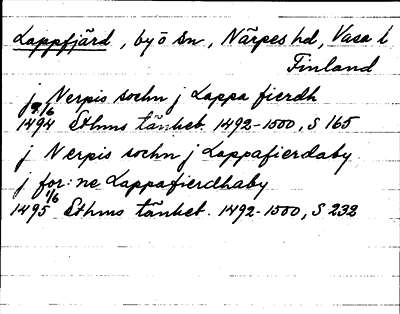 Lappfjärd, by ö sn, Närpes hd, Vasa l
Finland
j Nerpis sochn j Lappa fierdh
9/6
1494 Sthms tänkeb. 1492-1500, S 165
j Nerpis sochn j Lappafierdaby
j for:ne Lappafierdhaby
1/6
1495 Sthms tänkeb. 1492-1500, S 232